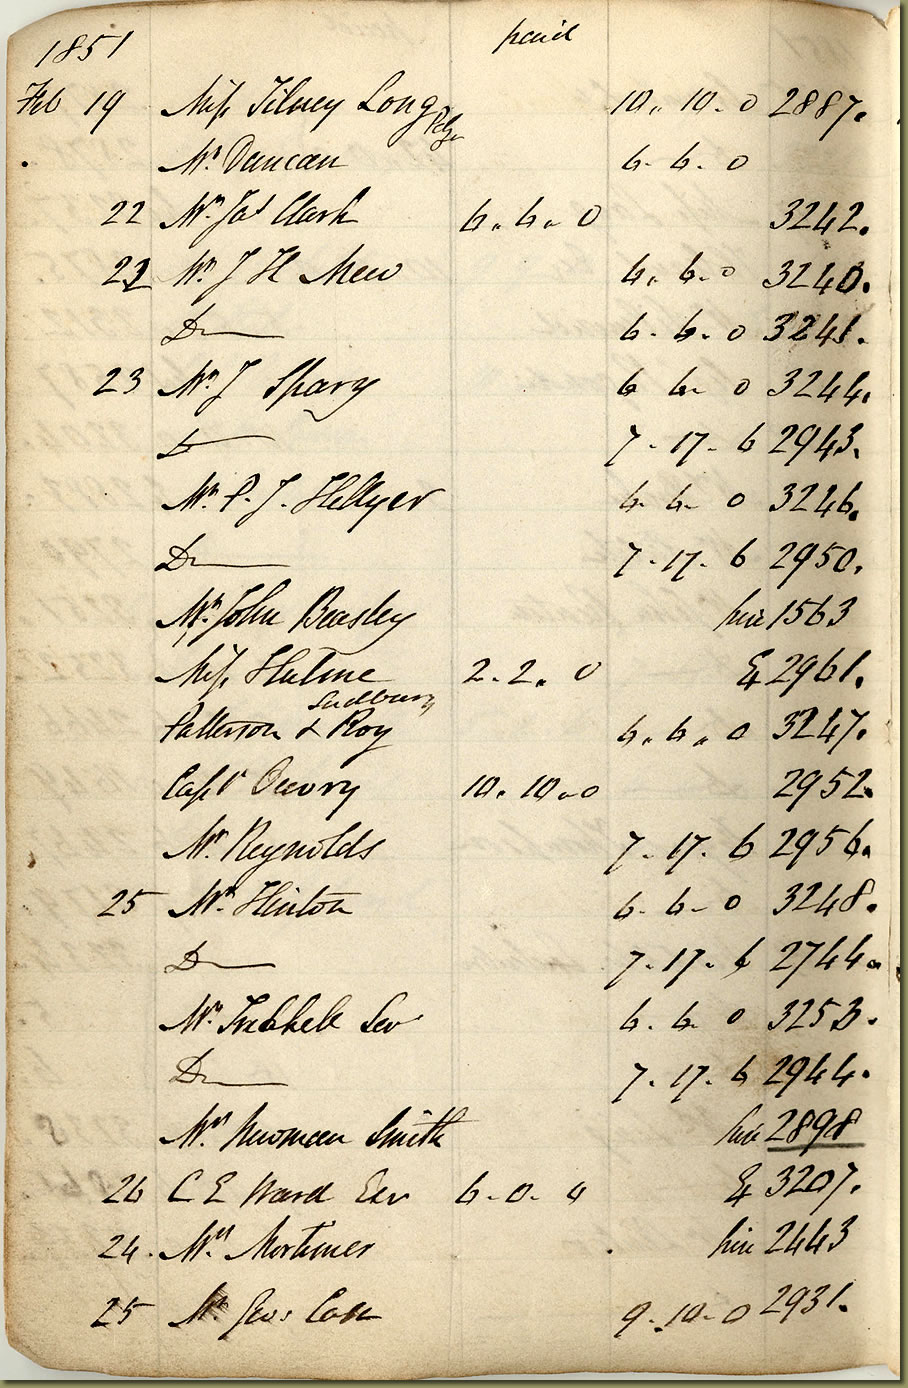 1851 paid
Feb 19 Miss Tilney Long 10. 10. 0 2887.
Mr. Duncan 6. 6. 0
22 Mr. Jas Clark 6. 6. 0 3242.
22 Mr. J H Mew 6. 6. 0 3240.
Do 6. 6. 0 3241.
23 Mr. J Spary 6 6. 0 3244.
Do 7. 17. 6 2943.
Mr. P. J. Hellyer 6. 6. 0 3246.
Do 7. 17. 6 2950.
Mr. John Beasley hire 1563
Miss Hulme 2. 2. 0 2961.
Sudbury
Patterson & Roy 6. 6. 0 3247.
Capt 10. 10. 0 2952.
Mr. Reynolds 7. 17. 6 2956.
25 Mr. Hinton 6. 6. 0 3248.
Do 7. 17. 6 2744.
Mr. Trebbeck Sen 6. 6. 0 3253.
Do 7. 17. 6 2944.
Mrs Newman Smith hire 2898
26 C E Ward Esr 6. 0. 0 3207.
24. Mrs. Mortimer hire 2443
25 Mr Geo: 9. 10. 0 2931.